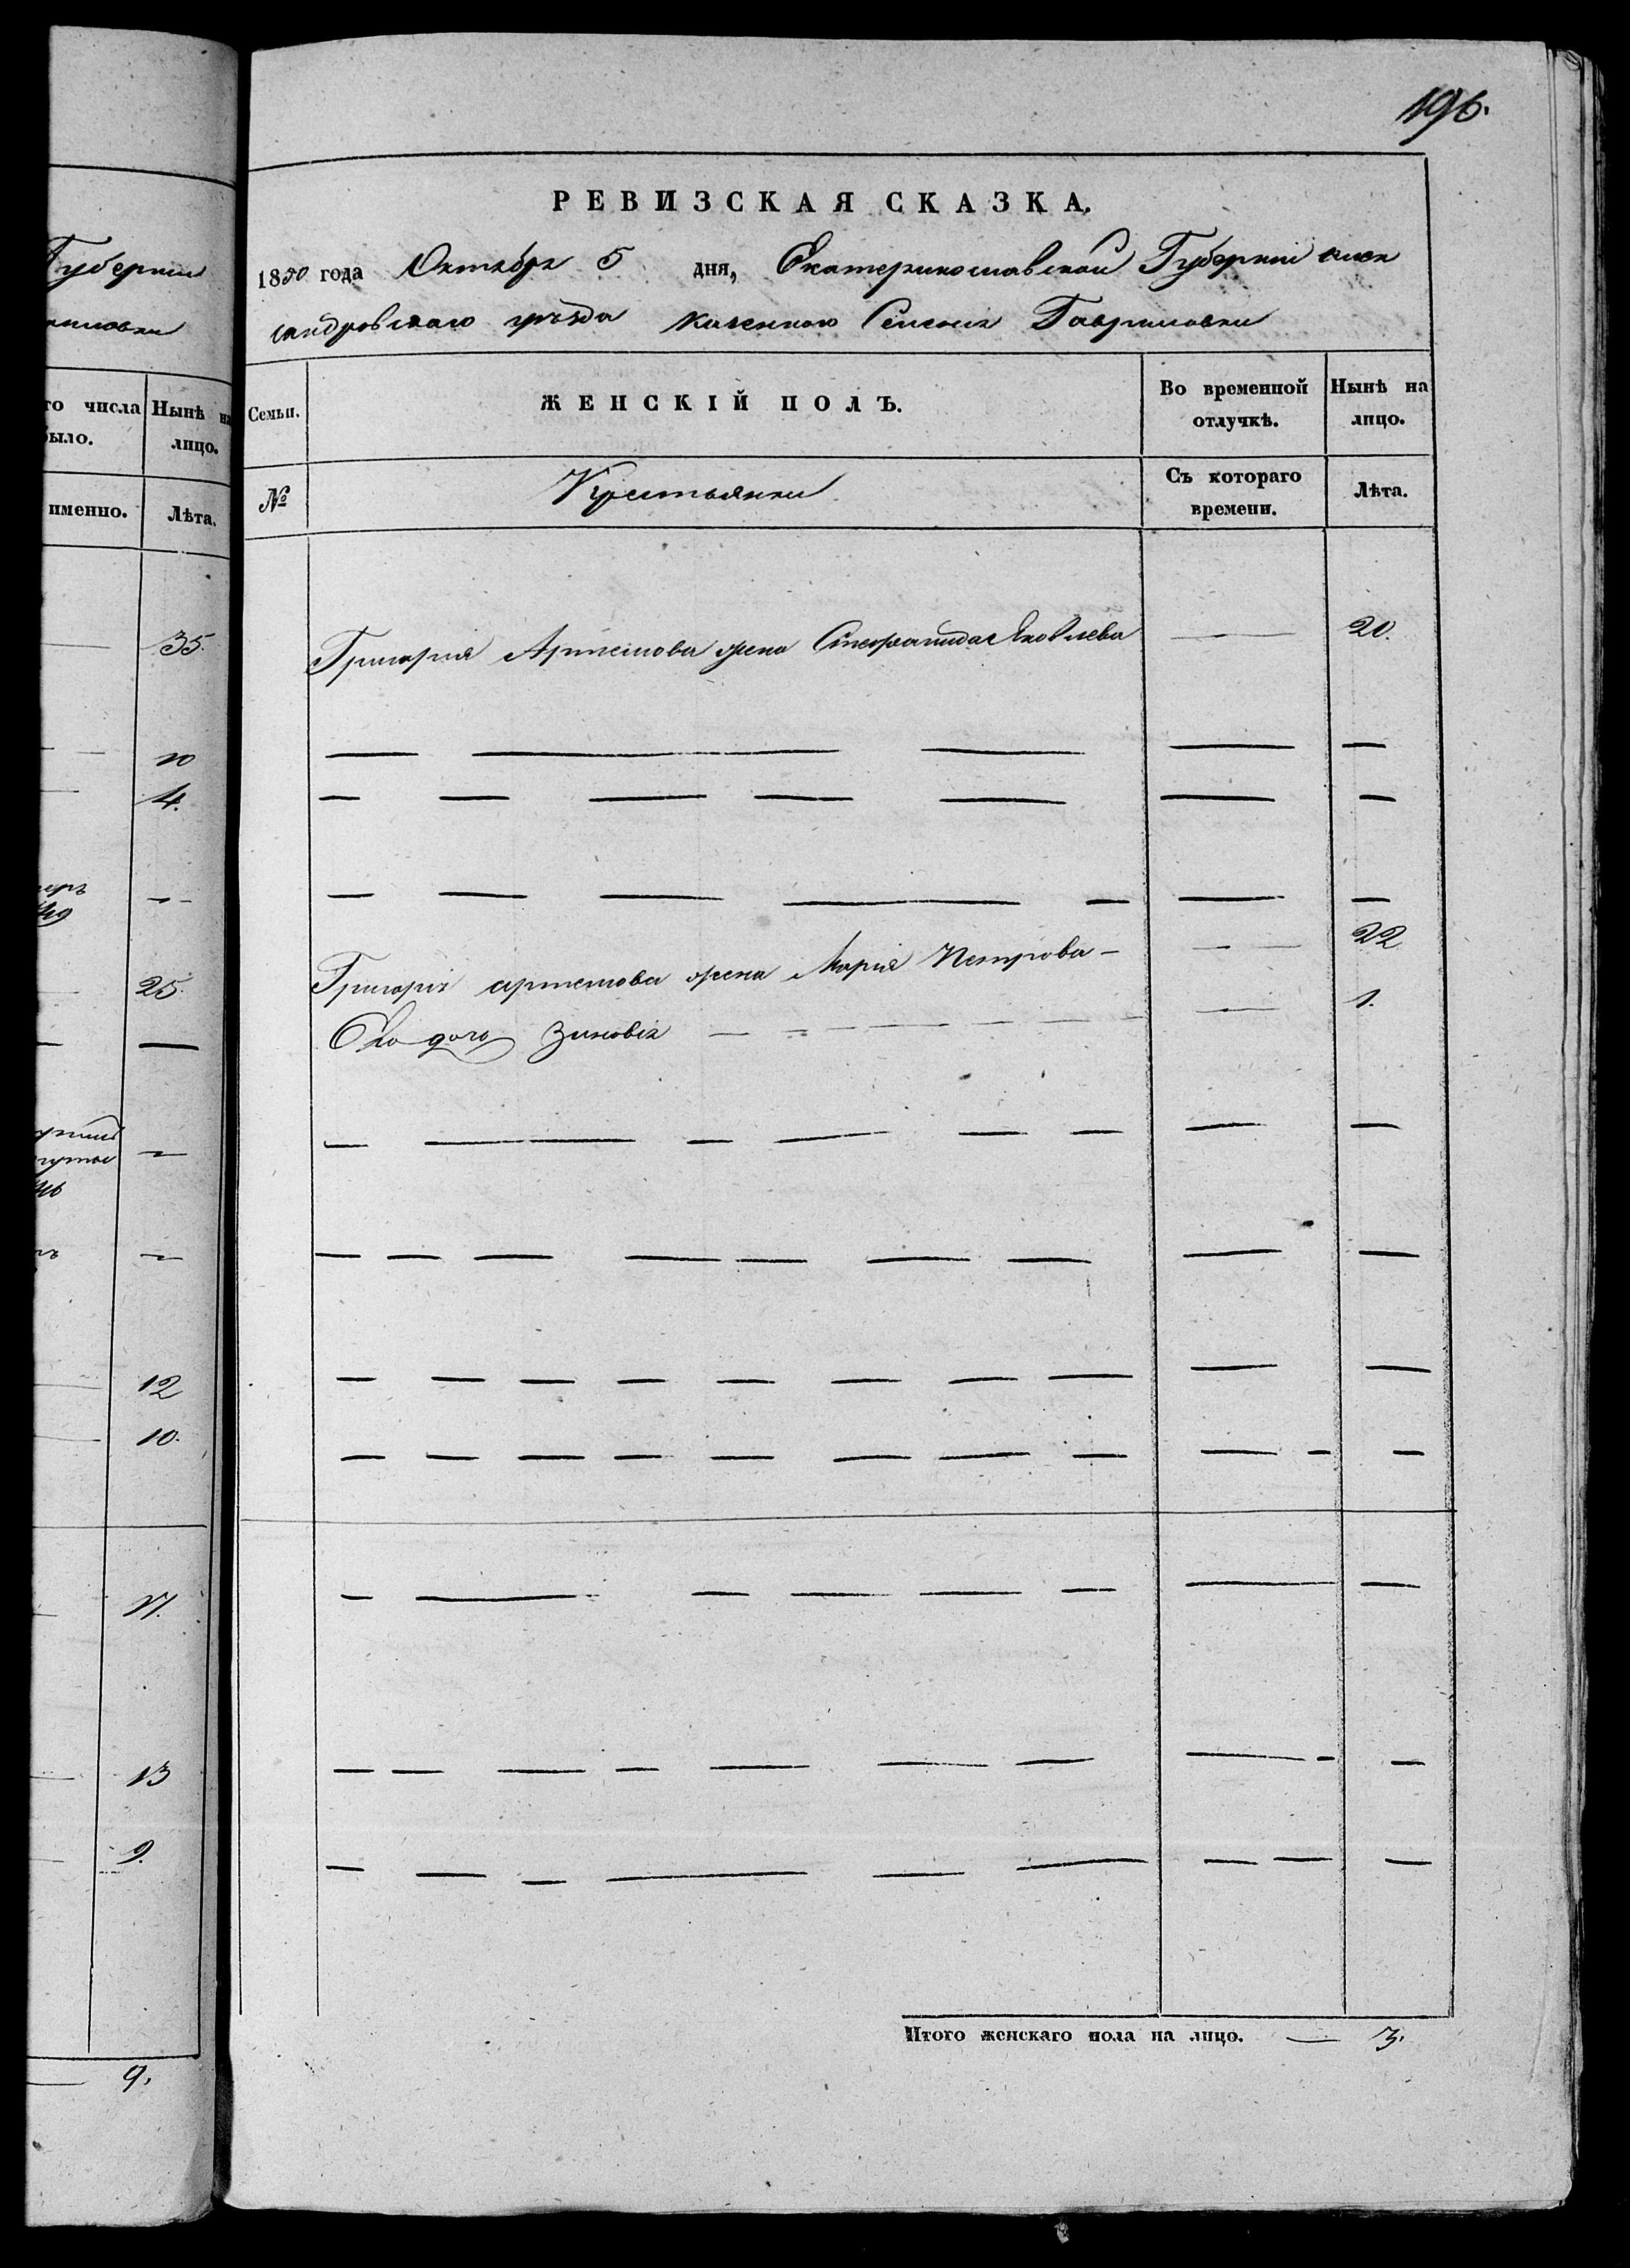 196.
РЕВИЗСКАЯ СКАЗКА.
1850 года Октября 5 дня, Екатеринославской Губернiи алек
сандровскаго уѣзда казенного Селенiя Гавриловки
Семьи.
ЖЕНСКIЙ ПОЛЪ.
Во временной отлучкѣ.
Нынѣ на лицо.
№
Крестьянки
Съ котораго времени.
Лѣта.
Григория Артемова жена Стефанида Яковлева — 20.
Григорiя артемова жена Марiя Петрова — 22
Его дочь Зиновiя — 1.
Итого женскаго пола на лицо. — 3.
Губернии
го числа
было.
Нынѣ на
лицо.
именно.
Лѣта.
35.
10
4.
25.
12
10.
13
9.
9.